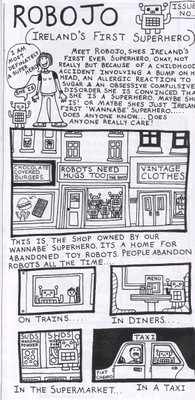 ROBOJO
ISSUE
NO.
(IRELAND'S FIRST SUPERHERO)
I AM
MOST
DEFINATELY
A SUPERHERO.
SHE IS
MEET ROBOJO, SHES IRELAND'S
FIRST EVER SUPERHERO. OKAY, NOT
REALLY BUT BECAUSE OF A CHILDHOOD
ACCIDENT INVOLVING A BUMP ON HER
HEAD, AN ALLERGIC REACTION TO
SUGAR & AN OBSESSIVE COMPULSIVE
DISORDER SHE IS CONVINCED THAT
SHE IS A SUPERHERO. MAYBE SHE
IS! OR MAYBE SHES JUST IRELANDS
FIRST 'WANNABE' SUPERHERO.....
DOES ANYONE KNOW... DOES
ANYONE REALLY CARE!
CHOCOLATE
COVERED
BURGERS.
ROBOTS NEED
HUGS TOO
VINTAGE
CLOTHES
THIS IS THE SHOP OWNED BY OUR
WANNABE SUPERHERO. ITS A HOME FOR
ABANDONED TOY ROBOTS. PEOPLE ABANDON
ROBOTS ALL THE TIME....
ON TRAINS....
MENU
IN DINERS....
SUDS
WASHING
POWDER
SUDS
IN THE SUPERMARKET...
TAXI
FIAT
CHEAPO
IN A TAXI